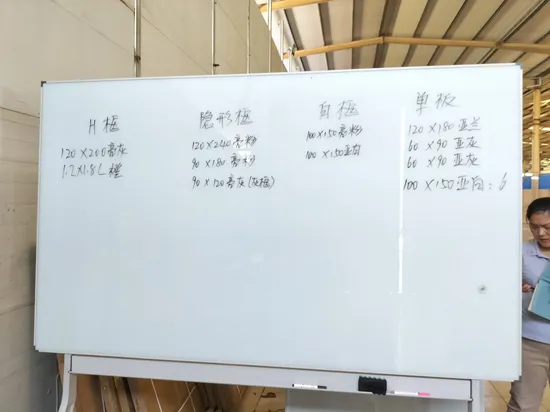 H框
120×200亮灰
1.2×1.8L橙
隐形框
120×240亮粉
90×180亮粉
90×120亮灰(灰框)
白框
100×150亮粉
100×150亚白
单板
120×180亚兰
60×90亚灰
60×90亚灰
100×150亚白:6